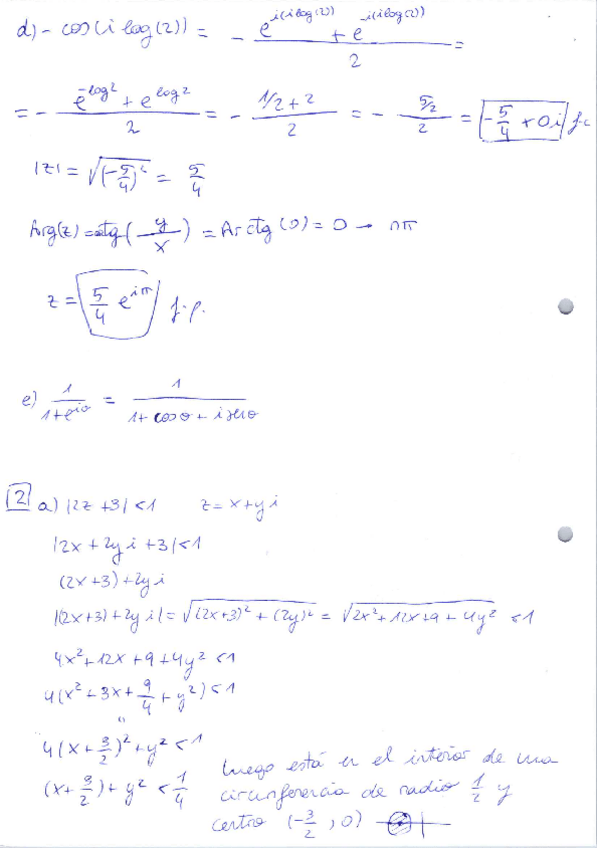 d) - cos(i log(2)) = - (e^{i(i log(2))} + e^{-i(i log(2))}) / 2 =
= - (e^{-log2} + e^{log2}) / 2 = - (1/2 + 2) / 2 = - (5/2) / 2 = -5/4 + 0i f.c
|z| = √((-5/4)²) = 5/4
Arg(z) = atg(y/x) = Arctg(0) = 0 → nπ
z = 5/4 e^{iπ} f.p.
e) 1 / (1+e^{iθ}) = 1 / (1+cosθ + i senθ)
2 a) |2z + 3| < 1 z = x + yi
|2x + 2yi + 3| < 1
(2x+3) + 2yi
|(2x+3) + 2yi| = √((2x+3)² + (2y)²) = √(2x² + 12x + 9 + 4y²) < 1
4x² + 12x + 9 + 4y² < 1
4(x² + 3x + 9/4 + y²) < 1
"
4(x + 3/2)² + y² < 1
(x + 3/2) + y² < 1/4
luego está en el interior de una
circunferencia de radio 1/2 y
centro (-3/2, 0)